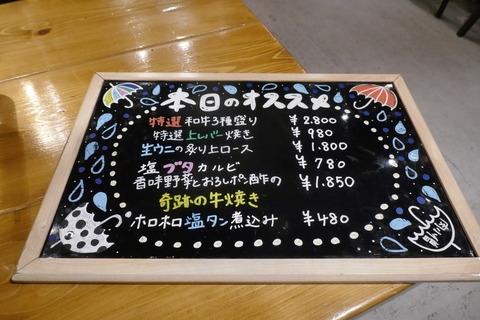 本日のオススメ
特選 和牛3種盛り ¥2.800
特選 上レバー焼き ¥980
生ウニの炙り上ロース ¥1.800
塩ブタカルビ ¥780
香味野菜とおろしポン酢の ¥1.850
奇跡の牛焼き
ホロホロ塩タン煮込み ¥480